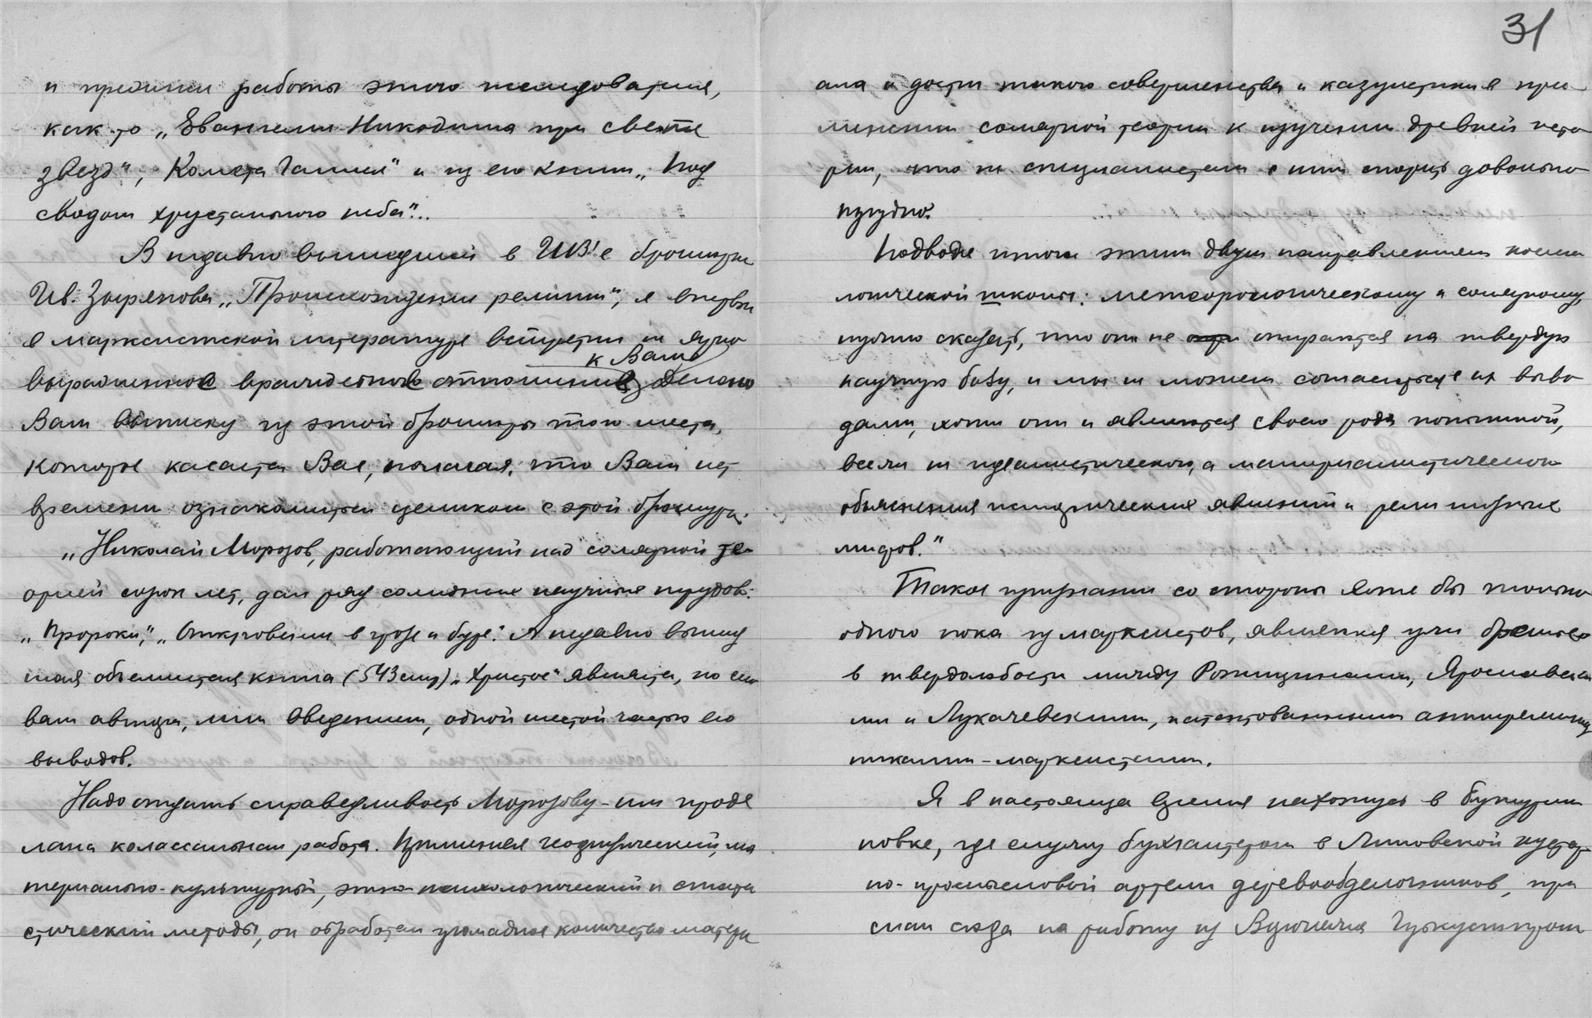 и прежние работы этого исследователя,
как-то „Евангелие Никодима при свете
звезд", „Комета Галлея" и из его книги „Под
сводом хрустального неба"...
В недавно вышедшей в ИВ!е брошюре
Ив. „Происхождение религии", я впервые
в марксистской литературе встретил не ярко
выраженное враждебное отношение к Вам. Делаю
Вам выписку из этой брошюры того места,
которое касается Вас, полагая, что Вам нет
времени ознакомиться целиком с этой брошюрой.
„Николай Морозов, работающий над солярной те-
орией сорок лет, дал ряд солидных научных трудов:
„Пророки", „Откровение в грозе и буре". А недавно вышед
шая объемистая книга (543 стр) „Христос" является, по сло
вам автора, лишь введением, одной шестой частью его
выводов.
Надо отдать справедливость Морозову – им проде
лана колоссальная работа. Применяя геофизический, ма
териально-культурный, этно-психологический и стати
стический методы, он обработал громадное количество матери
31
ала и достиг такого совершенства и казуистики в при
менении солярной теории к изучению древней исто
рии, что не специалистам с ним спорить довольно
трудно.
Подводя итоги этим двум направлениям космо
логической школы: метеорологическому и солярному,
нужно сказать, что они не опираются на твердую
научную базу, и мы не можем согласиться с их выво
дами, хотя они и являются своего рода попыткой,
если не идеалистического, а материалистического
объяснения исторических явлений и религиозных
мифов."
Такое признание со стороны хотя бы только
одного пока из марксистов, является уже брешью
в твердолобости между Рожицыными, Ярославски
ми и Лукачевскими, патентованными антирелигиоз
никами-марксистами.
Я в настоящее время нахожусь в Бутурли
новке, где служу бухгалтером в Липовской кустар
но-промысловой артели деревообделочников, при
слан сюда на работу из Воронежа Губкустпромом